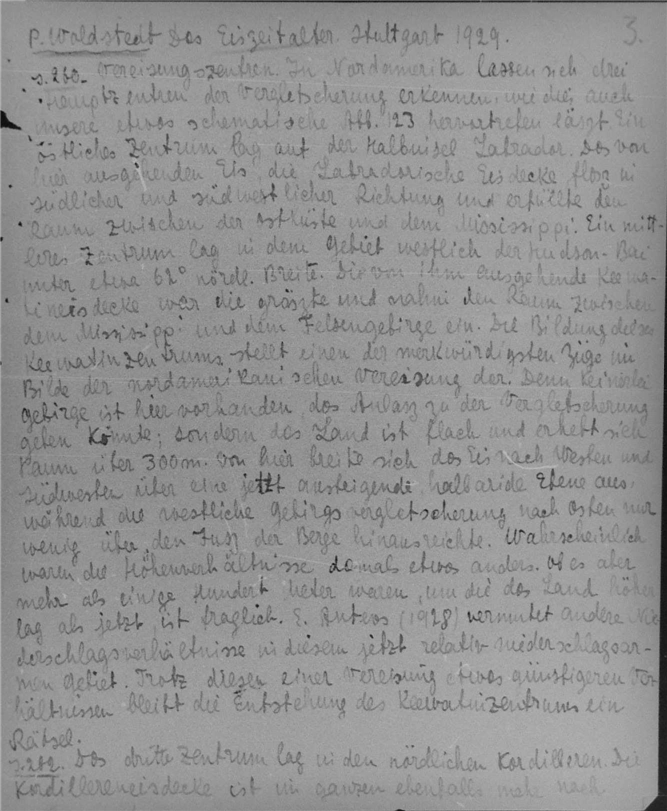 P. Woldstedt Das Eiszeitalter. Stuttgart 1929. 3.
s. 260. Vereisungszentren. In Nordamerika lassen sich drei
Hauptzentren der Vergletscherung erkennen, wie dies auch
unsere etwas schematische Abb. 123 hervortreten läszt. Ein
östliches Zentrum lag auf der Halbinsel Labrador. Das von
hier ausgehenden Eis, die Labradorische Eisdecke, flosz in
südlicher und südwestlicher Richtung und erfüllte den
Raum zwischen der Ostküste und dem Mississippi. Ein mitt-
leres Zentrum lag in dem Gebiet westlich der Hudson-Bai
unter etwa 62° nördl. Breite. Die von ihm ausgehende Keewa-
tineisdecke war die gröszte und nahm den Raum zwischen
dem Mississippi und dem Felsengebirge ein. Die Bildung dieses
Keewatinzentrums stellt einen der merkwürdigsten Züge im
Bilde der nordamerikanischen Vereisung dar. Denn keinerlei
Gebirge ist hier vorhanden, das Anlasz zu der Vergletscherung
geben könnte; sondern das Land ist flach und erhebt sich
kaum über 300 m. Von hier breite sich das Eis nach Westen und
Südwesten über eine jetzt ansteigende, halbaride Ebene aus,
während die westliche Gebirgsvergletscherung nach Osten nur
wenig über den Fusz der Berge hinausreichte. Wahrscheinlich
waren die Höhenverhältnisse damals etwas anders. Ob es aber
mehr als einige Hundert Meter waren, um die das Land höher
lag als jetzt, ist fraglich. E. Antevs (1928) vermutet andere Nie-
derschlagsverhältnisse in diesem jetzt relativ niederschlagsar-
men Gebiet. Trotz diesen einer Vereisung etwas günstigeren Ver-
hältnissen bleibt die Entstehung des Keewatinzentrums ein
Rätsel.
s. 262. Das dritte Zentrum lag in den nördlichen Kordilleren. Die
Kordillereneisdecke ist im ganzen ebenfalls mehr nach